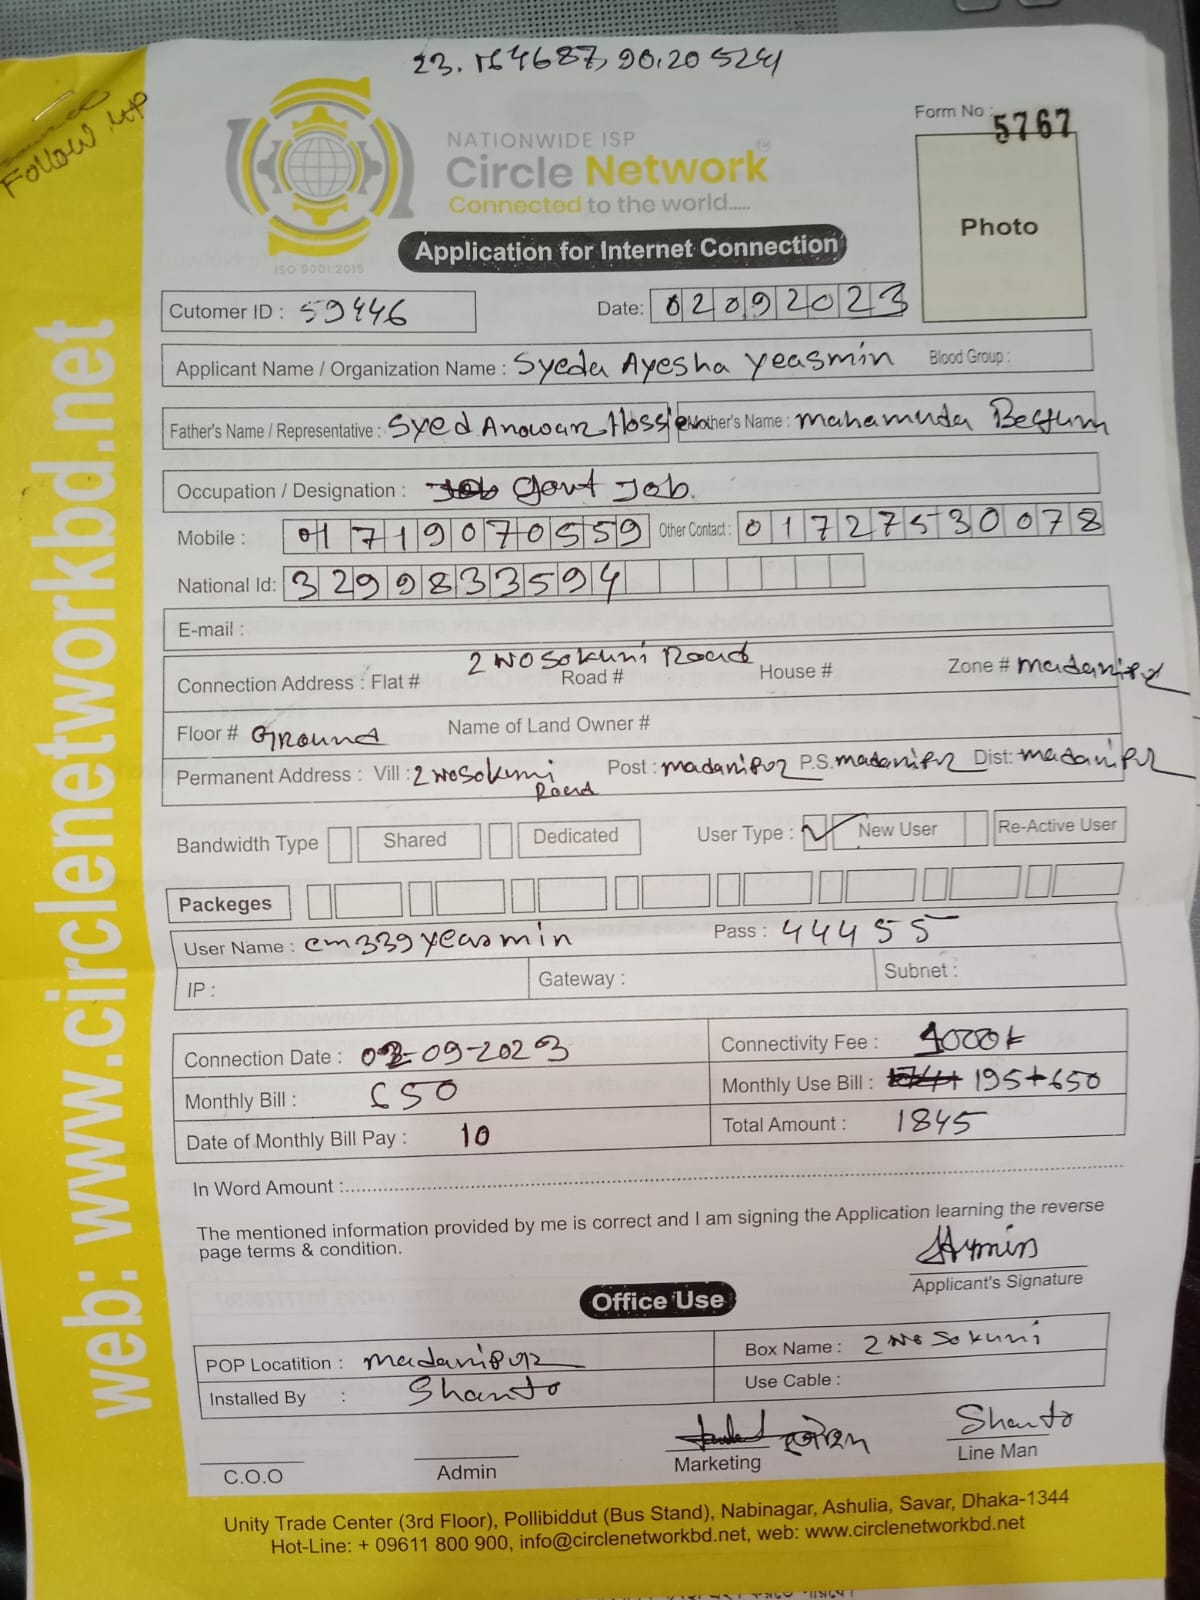 23.164687, 90.205241
Follow up
Form No : 5767
NATIONWIDE ISP
Circle Network
Connected to the world.....
ISO 9001:2015
Photo
Application for Internet Connection
Cutomer ID : 59446
Date: 02092023
Applicant Name / Organization Name : Syeda Ayesha Yeasmin Blood Group :
Father's Name / Representative : Syed Anowar Hossien Mother's Name : Mahamuda Begum
Occupation / Designation : Govt Job.
Mobile : 01719070559 Other Contact : 01727530078
National Id: 3299833594
E-mail :
Connection Address : Flat # 2 No Sokuni Road Road # House # Zone # Madaripur
Floor # Ground Name of Land Owner #
Permanent Address : Vill : 2 No Sokuni Road Post : Madaripur P.S. Madaripur Dist: Madaripur
Bandwidth Type Shared Dedicated User Type : New User Re-Active User
Packeges
User Name : cm339yeasmin Pass : 44455
IP : Gateway : Subnet :
Connection Date : 02-09-2023 Connectivity Fee : 1000tk
Monthly Bill : 650 Monthly Use Bill : 195+650
Date of Monthly Bill Pay : 10 Total Amount : 1845
In Word Amount :
The mentioned information provided by me is correct and I am signing the Application learning the reverse
page terms & condition.
Applicant's Signature
Office Use
POP Locatition : Madaripur Box Name : 2 No Sokuni
Installed By : Shanto Use Cable :
Shanto
C.O.O Admin Marketing Line Man
Unity Trade Center (3rd Floor), Pollibiddut (Bus Stand), Nabinagar, Ashulia, Savar, Dhaka-1344
Hot-Line: + 09611 800 900, info@circlenetworkbd.net, web: www.circlenetworkbd.net
web: www.circlenetworkbd.net